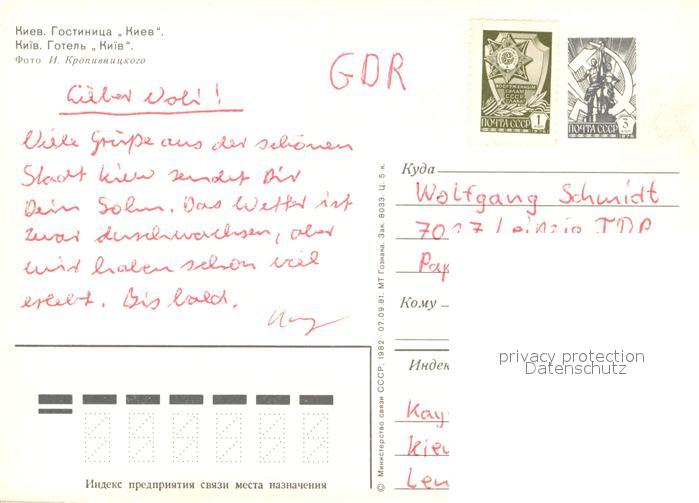 Киев. Гостиница „Киев“.
Київ. Готель „Київ“.
Фото И. Кропивницкого
GDR
Lieber Vati!
Viele Grüße aus der schönen
Stadt Kiew sendet Dir
Dein Sohn. Das Wetter ist
zwar durchwachsen, aber
wir haben schon viel
erlebt. Bis bald.
Kay
ВООРУЖЕННЫМ
СИЛАМ
СССР
СЛАВА
1
ПОЧТА СССР
1976
3
ПОЧТА СССР
1976
Куда
Wolfgang Schmidt
7027 Leipzig
Pap
Кому
privacy protection
Datenschutz
Индек
Kay
Kiew
Len
© Министерство связи СССР, 1982 07.09.81. МТ Гознака. Зак. 8033. Ц. 5 к.
Индекс предприятия связи места назначения